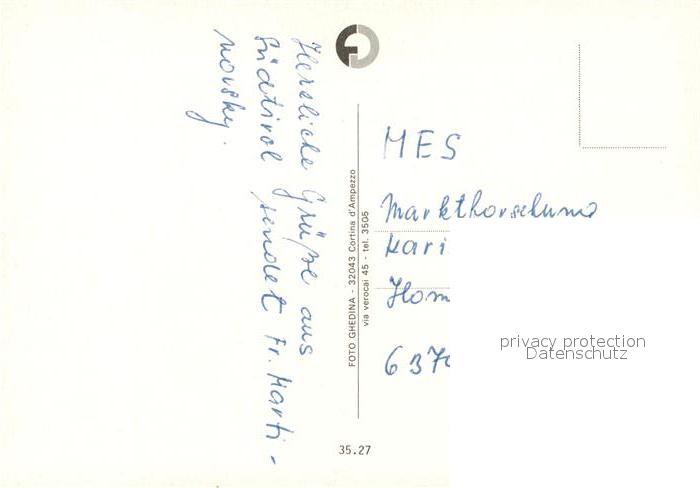 Herzliche Grüße aus
Südtirol sendet Fr. Marti-
novsky.
FOTO GHEDINA - 32043 Cortina d'Ampezzo
via verocai 45 - tel. 3505
35.27
MES
Marktforschung
Kari
Hom
637
privacy protection
Datenschutz